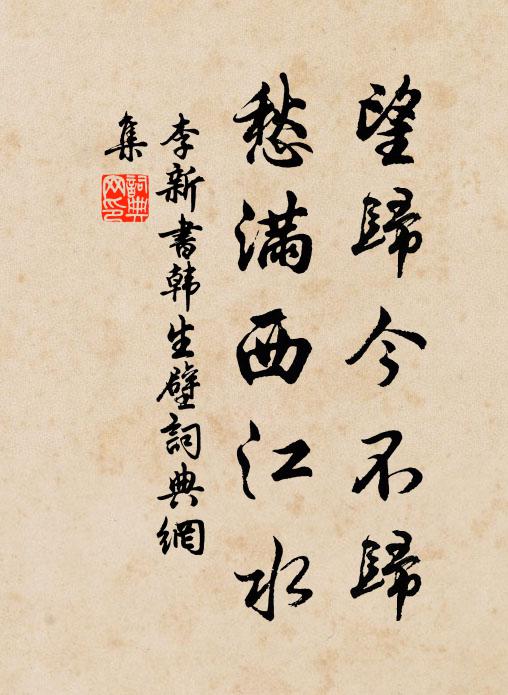 望歸今不歸
愁满西江水
李新書韩生壁詞典網
集
詞典
网印